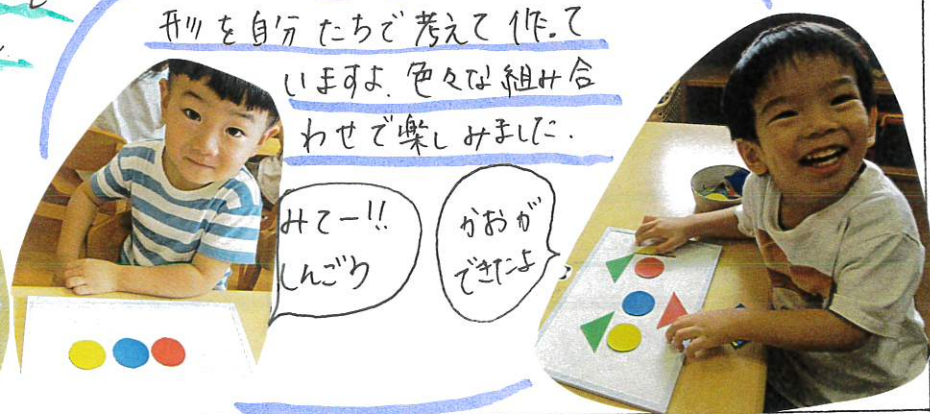 形を自分たちで考えて作って
いますよ。色々な組み合
わせで楽しみました。
みてー!!
しんごう
かおが
できたよ